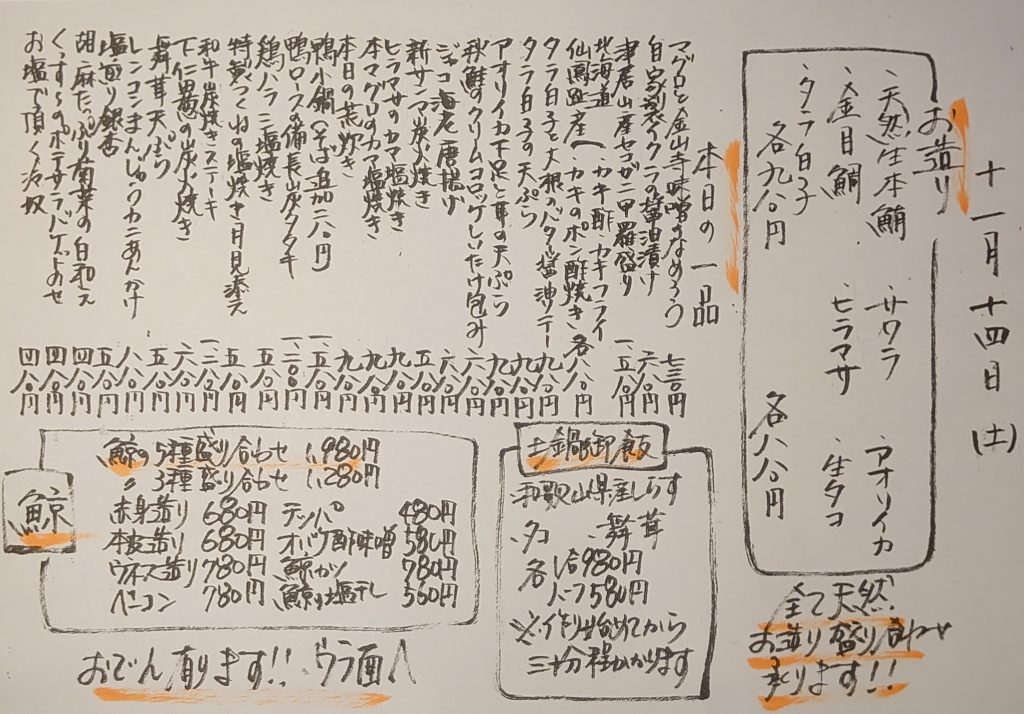 十一月十四日(土)
お造り
・天然生本鮪 ・サワラ ・アオリイカ
・金目鯛 ・ヒラマサ ・生タコ
・タラ白子
各九八〇円 各八八〇円
全て天然
お造り盛り合わせ
承ります!!
本日の一品
マグロと金山寺味噌のなめろう 七三〇円
自家製イクラの醤油漬け 六八〇円
津居山産セコガニ甲羅盛り 一、五八〇円
北海道 ・カキ酢・カキフライ
仙鳳趾産 ・カキのポン酢焼き 各八八〇円
タラ白子と大根のバター醤油ソテー 九八〇円
タラ白子の天ぷら 九八〇円
アオリイカ下足と耳の天ぷら 九八〇円
秋鮭のクリームコロッケしいたけ包み 六八〇円
ジャコ海老唐揚げ 六八〇円
新サンマ炭火焼き 五八〇円
ヒラマサのカマ塩焼き 九八〇円
本マグロのカマ塩焼き 九八〇円
本日の荒炊き 九八〇円
鴨小鍋(そば追加二八〇円 一、五八〇円
鴨ロースの備長炭タタキ 一、二八〇円
鶏ハラミ塩焼き 五八〇円
特製つくねの塩焼き月見添え 五八〇円
和牛炭焼きステーキ 一、二八〇円
下仁田葱の炭火焼き 六八〇円
舞茸天ぷら 五八〇円
レンコンまんじゅうカニあんかけ 八八〇円
塩煎り銀杏 五八〇円
胡麻たっぷり菊菜の白和え 四八〇円
くんすーのポテサラバゲットのせ 四八〇円
お塩で頂く冷奴 四八〇円
土鍋御飯
・和歌山県産しらす
・タコ ・舞茸
各 1合980円
ハーフ580円
※作り始めてから
三十分程かかります
鯨
鯨の5種盛り合わせ 1,980円
〃 3種盛り合わせ 1,280円
赤身造り 680円 テッパ 480円
本皮造り 680円 オバケ酢味噌 580円
ウネス造り 780円 鯨カツ 780円
ベーコン 780円 鯨の塩干し 560円
おでん有ります!! ウラ面へ